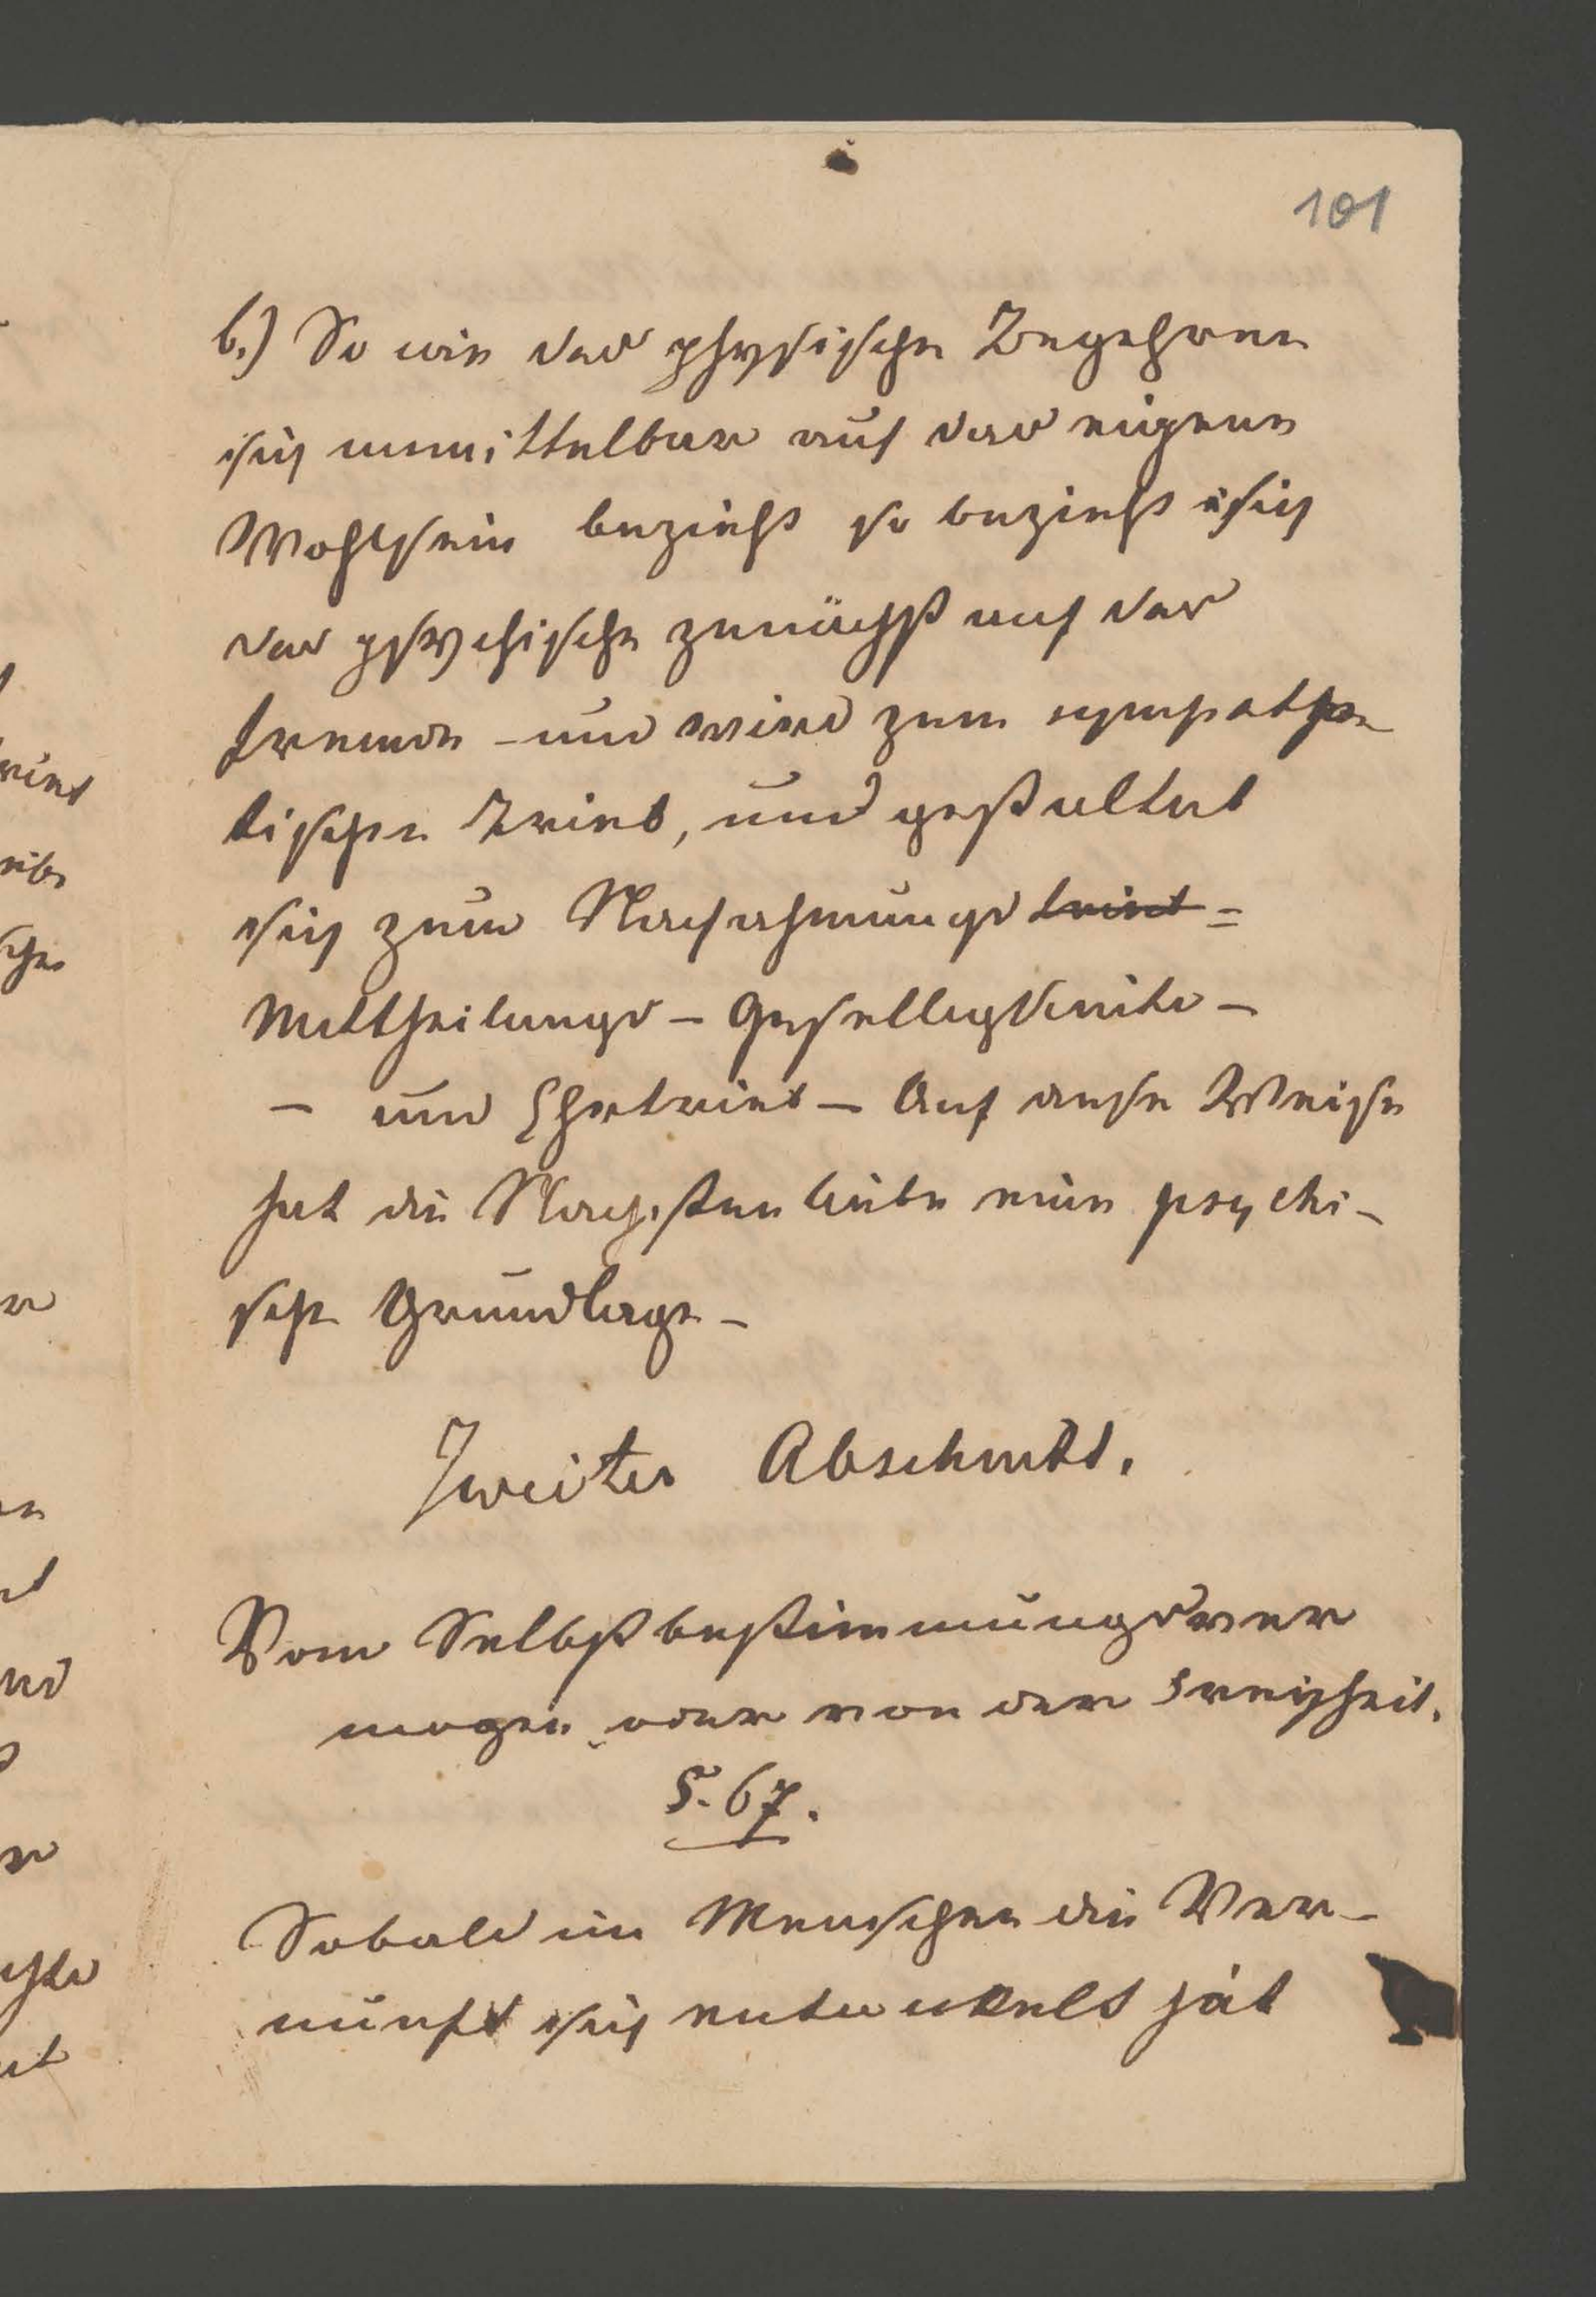 101
b.) So wie das physische Begehren
sich unmittelbar auf das eigene
Wohlsein bezieht so bezieht sich
das psychische zunächst auf das
fremde – und wird zum sympathe
tischen Trieb, und gestaltet
sich zum Nachahmungs trieb =
Mittheilungs – Geselligkeits –
– und Ehrtrieb – Auf diese Weise
hat die Nachstenliebe eine psychi –
sche Grundlage –
Zweiter Abschnitt.
Vom Selbstbestimmungsver
mogen oder von der Freyheit.
§. 67.
Sobald im Menschen die Ver –
nunft sich entwickelt hat